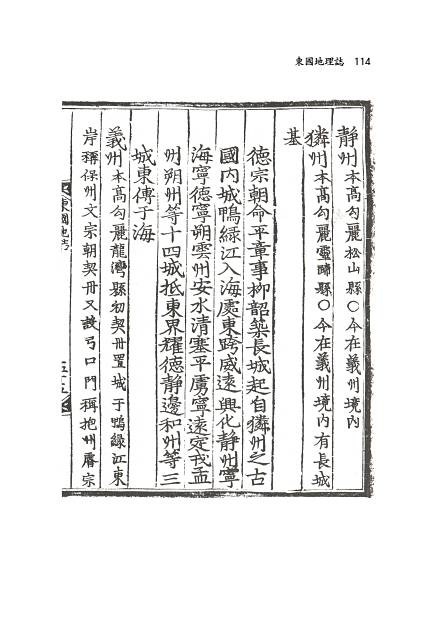 東國地理誌 114
靜州本高勾麗松山縣○今在義州境內
獜州本高勾麗靈蹄縣○今在義州境內有長城
基
德宗朝命平章事柳韶築長城起自獜州之古
國內城鴨綠江入海處東跨威遠興化靜州寧
海寧德寧朔雲州安水清塞平虜寧遠定戎孟
州朔州等十四城抵東界耀德靜邊和州等三
城東傅于海
義州本高勾麗龍灣縣初契丹置城于鴨綠江東
岸稱保州文宗朝契丹又設弓口門稱抱州睿宗
東國地誌